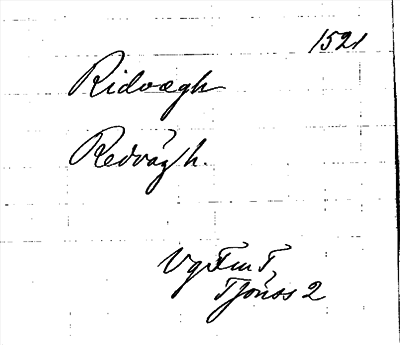 1521
Ridvægh
Redvägh.
VgFmT
Tjönss 2